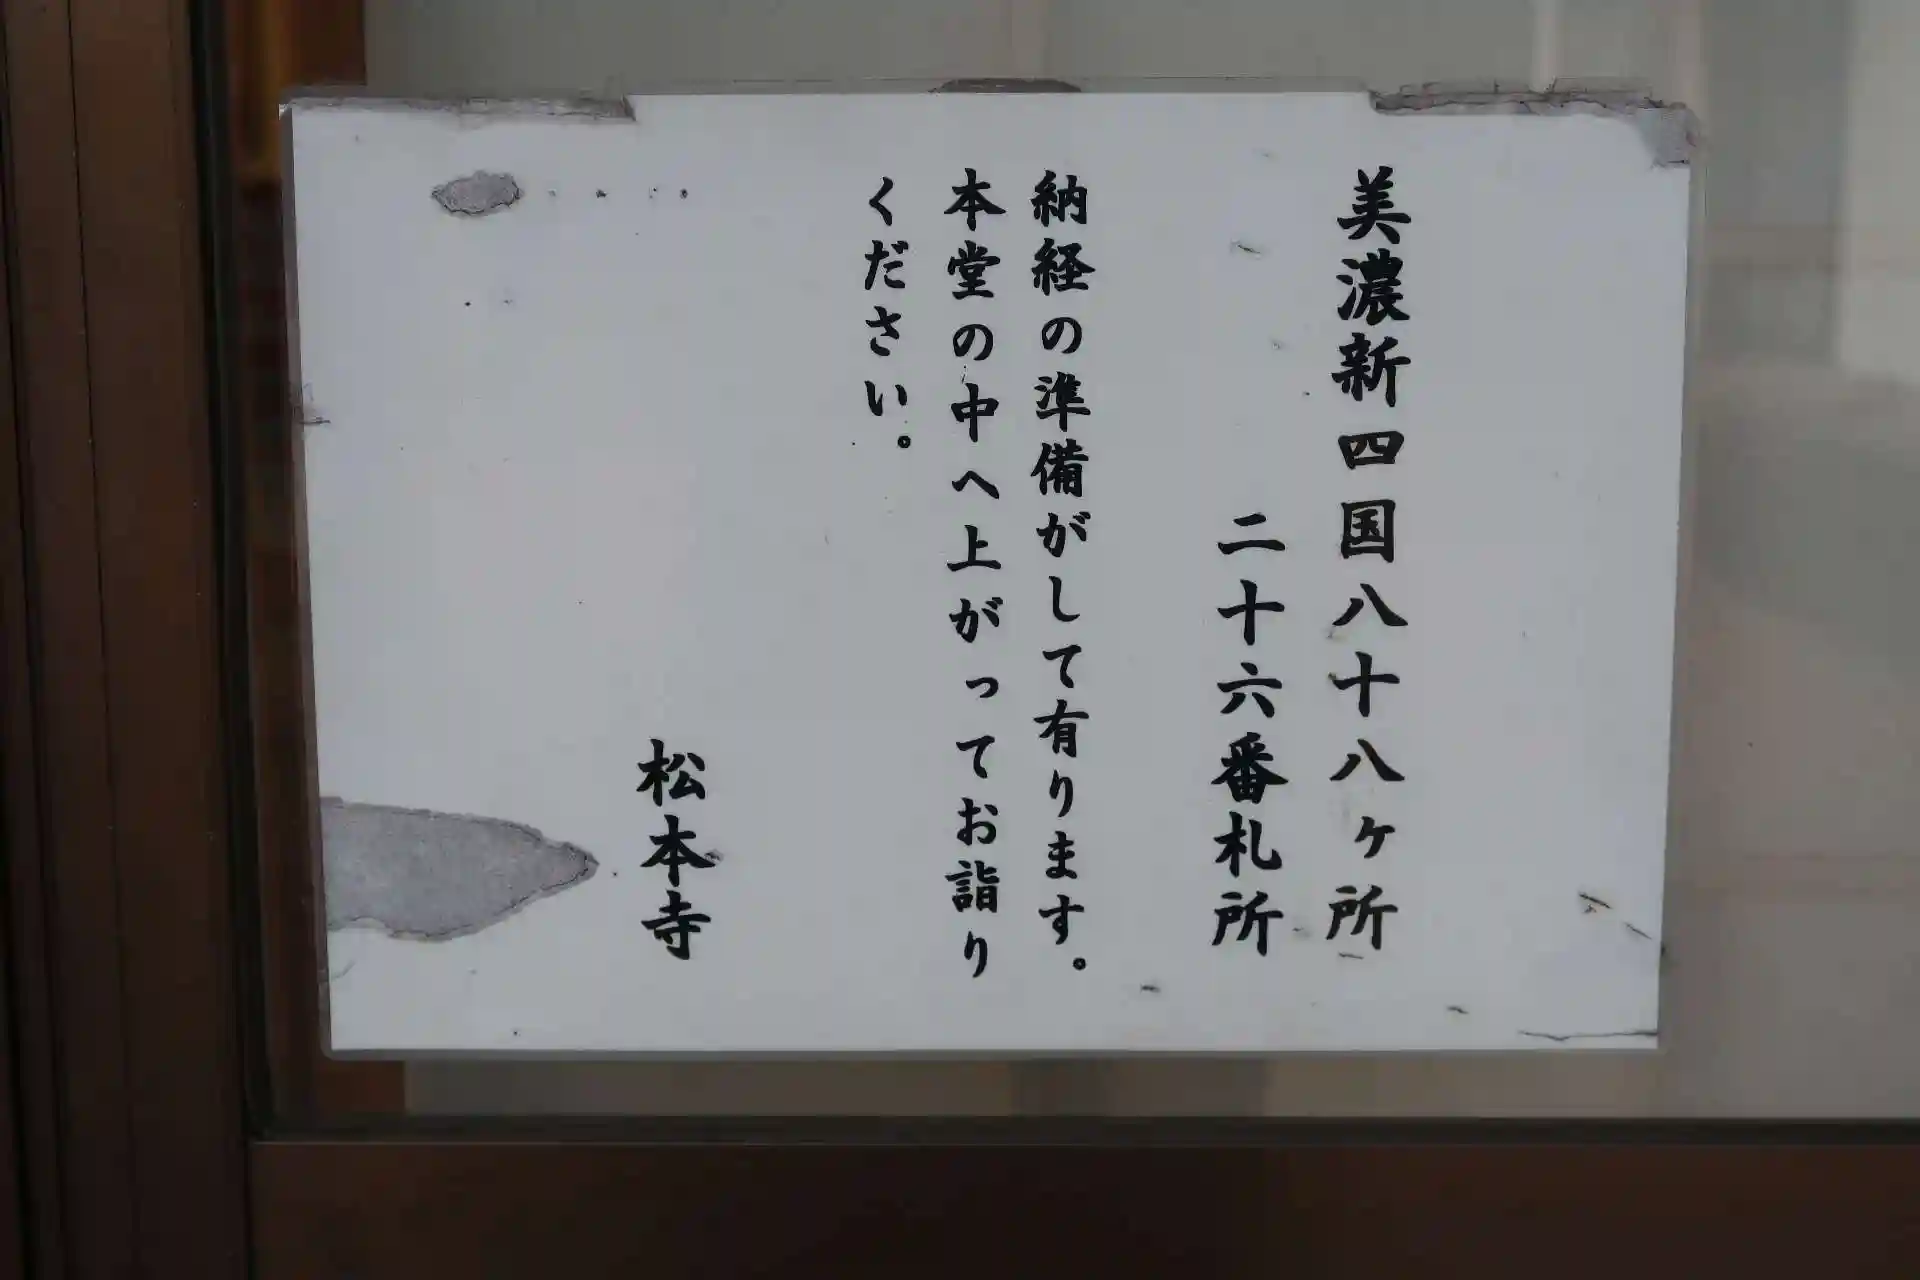 美濃新四国八十八ヶ所
二十六番札所
納経の準備がして有ります。
本堂の中へ上がってお詣り
ください。
松本寺